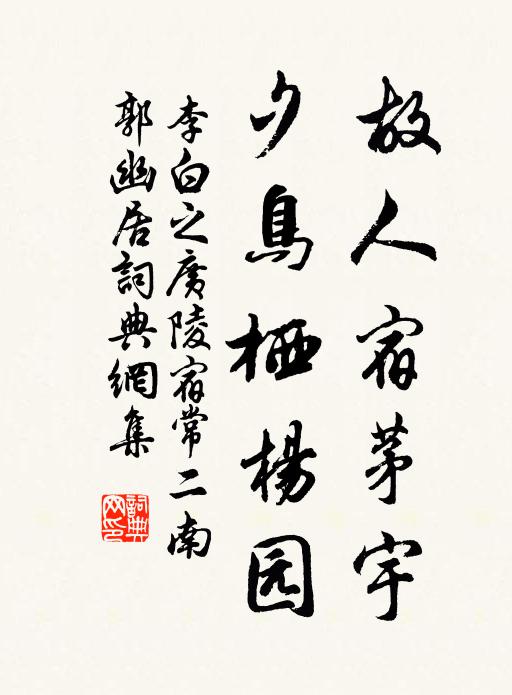 故人宿茅宇
夕鳥栖楊园
李白之廣陵宿常二南
郭幽居詞典網集
詞典
网印